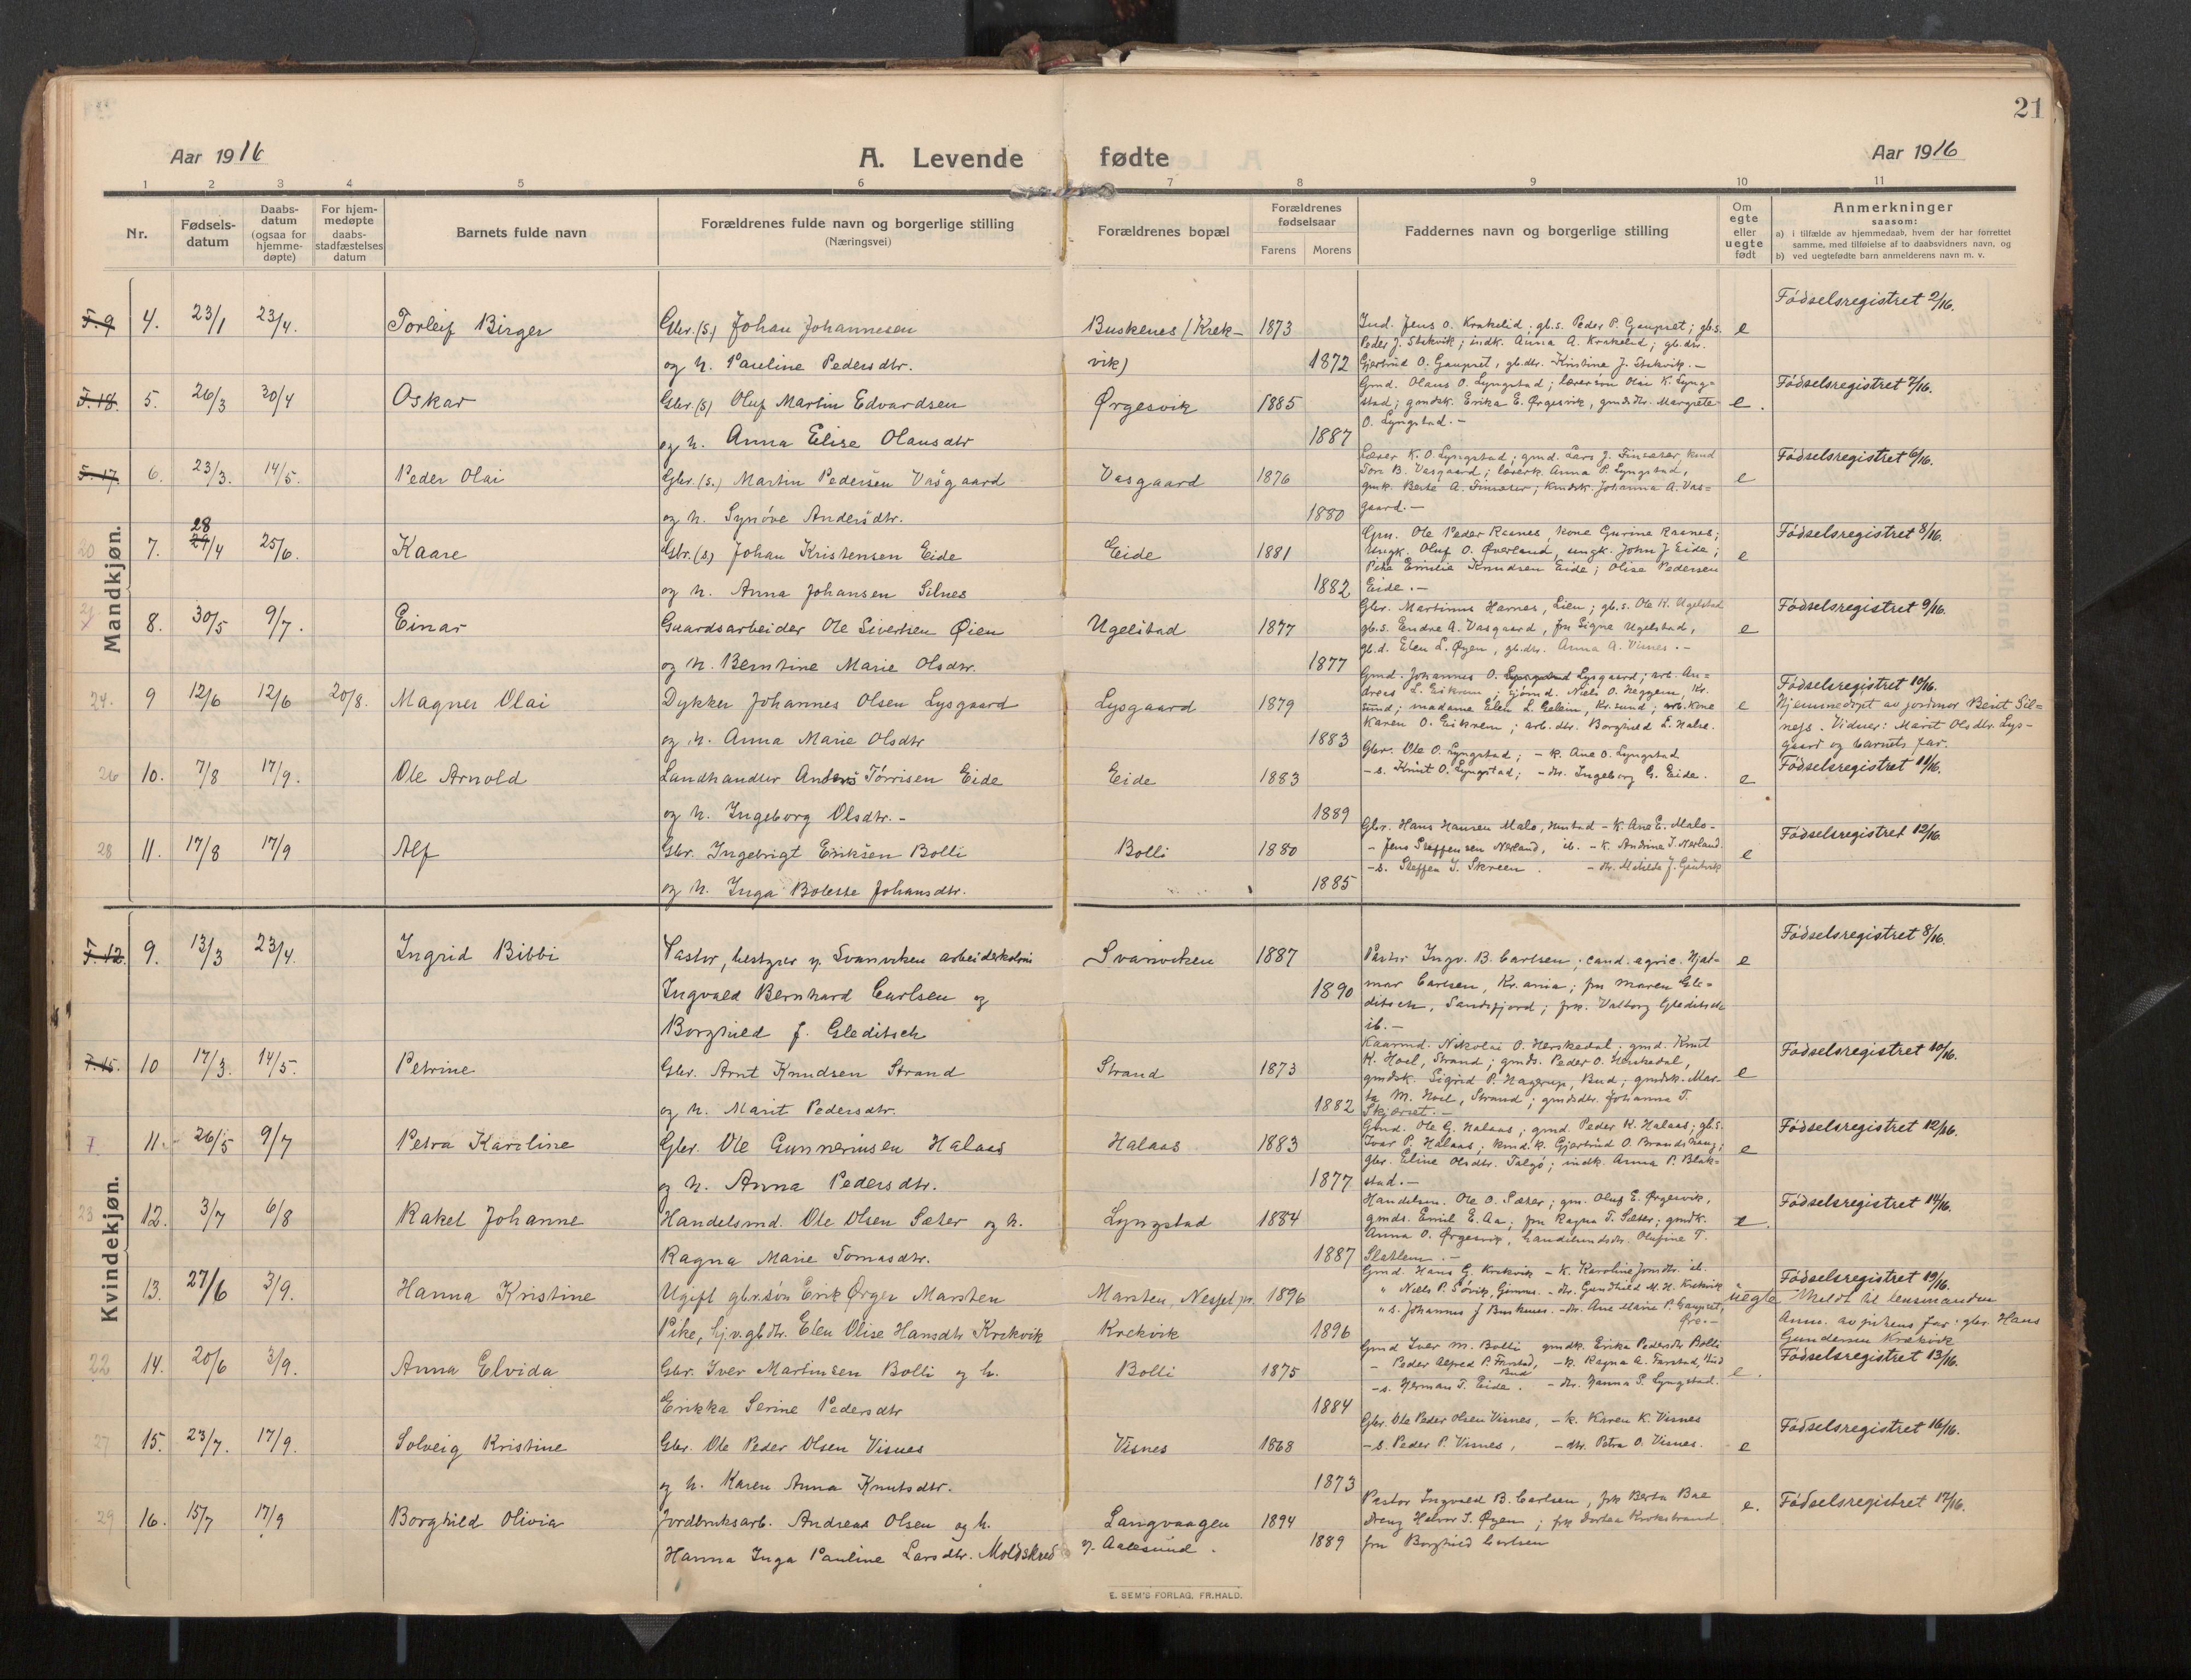 21
Aar 1916 A. Levende fødte Aar 1916
1 2 3 4 5 6 7 8 9 10 11
Nr. Fødsels-datum Daabs-datum (ogsaa for hjemme-døpte) For hjem-medøpte daabs-stadfæstelses datum Barnets fulde navn Forældrenes fulde navn og borgerlige stilling (Næringsvei) Forældrenes bopæl Forældrenes fødselsaar Farens Morens Faddernes navn og borgerlige stilling Om egte eller uegte født Anmerkninger saasom:
a) i tilfælde av hjemmedaab, hvem der har forrettet samme, med tilføielse af to daabsvidners navn, og
b) ved uegtefødte barn anmelderens navn m. v.
Mandkjøn.
F. 9 4. 23/1 23/4. Torleif Birger Gbr. (s) Johan Johannesen Buskenes (Krek- 1873 Ind. Jens O. Krakelid; gb.s. Peder P. Gaupset; gb.s. e Fødselsregistret 2/16.
Peder J. Stokvik; indk. Anna A. Krakelid; gb.dtr.
og h. Pauline Pedersdtr. vik) 1872 Gjertrud O. Gaupset, gb.dtr. Kristine J. Stokvik. -
F. 18. 5. 26/3 30/4 Oskar Gbr. (s) Oluf Martin Edvardsen Ørgesvik 1885 Gmd. Olaus O. Lyngstad; lærersøn Olai K. Lyng- e. Fødselsregistret 7/16.
stad; gmdsk. Erika E. Ørgesvik, gmdsdtr. Margrete
og h. Anna Elise Olausdtr 1887 O. Lyngstad. -
F. 17. 6. 23/3. 14/5. Peder Olai Gbr. (s.) Martin Pedersen Vasgaard Vasgaard 1876 Lærer K. O. Lyngstad; gmd. Lars J. Finsæter, kmd e Fødselsregistret 6/16.
Tore B. Vasgaard; lærerk. Anna P. Lyngstad,
gmk. Berte A. Finsæter; kmdsk. Johanna A. Vas-
og h. Synøve Andersdtr. 1880 gaard. -
20 7. 28 29/4 25/6. Kaare Gbr. (s) Johan Kristensen Eide Eide 1881 Gm. Ole Peder Rasnes, kone Gurine Rasnes; e Fødselsregistret 8/16.
Ungk. Oluf O. Øverland, ungk. John J Eide;
Pike Emilie Knudsen Eide; Olise Pedersen
og h. Anna Johansen Silnes 1882 Eide. -
21 8. 30/5 9/7. Einar Gaardsarbeider Ole Sivertsen Øien Ugelstad 1877 Gbr. Martinus Harnes, Lien; gb.s. Ole K. Ugelstad e Fødselsregistret 9/16.
gb.s. Endre A. Vasgaard, frk Signe Ugelstad,
og h. Berntine Marie Olsdtr. 1877 gb.d. Elen L. Øyen, gb.dtr. Anna A. Visnes. -
24. 9 12/6 12/6 20/8. Magner Olai Dykker Johannes Olsen Lysgaard Lysgaard 1879 Gmd. Johannes O. Lysgaard; arb. An- e Fødselsregistret 10/16.
dreas L. Eikrem; sjømd. Niels O. Heggem, Kr. Hjemmedøpt av jordmor Berit Sil-
sund; madame Elen L. Gelein, Kr.sund; arb. kone nes. Vidner: Marit Olsdtr. Lys-
og h. Anna Marie Olsdtr 1883 Karen O. Eikrem; arb.dtr. Borghild L. Halse. gaard og barnets far.
26 10. 7/8 17/9. Ole Arnold Landhandler Anders Tørrisen Eide Eide 1883 Gbr. Ole O. Lyngstad; - k. Ane O. Lyngstad e Fødselsregistret 11/16.
- s. Knut O. Lyngstad; - dtr. Ingeborg G. Eide.
og h. Ingeborg Olsdtr. - 1889
28 11. 17/8 17/9 Alf Gbr. Ingebrigt Eriksen Bolli Bolli 1880 Gbr. Hans Hansen Malo, Hustad - k. Ane E. Malo - e Fødselsregistret 12/16.
- Jens Steffensen Nerland, ib. - k. Andrine J. Nerland.
- s. Steffen J. Skreen. - dtr. Matilde J.
og h. Inga Boletta Johansdtr. 1885
Kvindekjøn.
F. 12. 7 9. 13/3 23/4. Ingrid Bibbi Pastor, bestyrer v. Svanviken arbeiderkoloni Svanviken 1887 Pastor Ingv. B. Carlsen; cand. agric. Hjal- e Fødselsregistret 8/16.
Ingvald Bernhard Carlsen og 1890 mar Carlsen, Kr.ania; fru Maren Gle-
ditsch, Sandefjord; frk. Valborg Gleditsch
Borghild f. Gleditsch ib. -
F. 15. 10 17/3. 14/5. Petrine Gbr. Arnt Knudsen Strand Strand 1873 Kaarmd. Nikolai O. Herskedal; gmd. Knut e Fødselsregistret 10/16.
K. Hoel, Strand; gmds. Peder O. Herskedal,
gmdsk. Sigrid P. Hagerup, Bud; gmdsk. Mar-
og h. Marit Pedersdtr. 1882 ta M. Hoel, Strand; gmdsdtr. Johanna T.
Skjærset. -
11. 26/5 9/7 Petra Karoline Gbr. Ole Gunneriusen Halaas Halaas 1883 Gmd. Ole G. Halaas; gmd. Peder K. Halaas; gb.s. e Fødselsregistret 12/16.
Iver P. Halaas; kmd.k. Gjertrud O. Brandshaug;
gbr. Eline Olsdtr. Talgø; indk. Anna P. Blak-
og h. Anna Pedersdtr. 1877 stad. -
23 12. 3/7 6/8 Rakel Johanne Handelsmd. Ole Olsen Sæter og h. Lyngstad 1884 Handelsm. Ole O. Sæter; gm. Oluf E. Ørgesvik, e. Fødselsregistret 14/16.
gmds. Emil E. Aa; fru Ragna T. Sæter; gmdk.
Anna O. Ørgesvik, handelsmdsdtr. Olufine T.
Ragna Marie Tomasdtr. 1887 Slatlem. -
13. 27/6 3/9. Hanna Kristine Ugift gbr.søn Erik Ørger Marsten Marsten, Nesset pr. 1896 Gmd. Hans G. Krekvik - k. Karoline Jonsdtr. ib. uegte Fødselsregistret 19/16.
" Niels P. Sørvik, Gimnes. - dtr. Gundhild M. H. Krekvik Meldt til lensmanden
" s. Johannes J Buskenes. - dtr. Ane Marie P. Gaupset, Anm. av pikens far: gbr. Hans
Pike, hj.v. gb.dtr. Elen Olise Hansdtr Krekvik Krekvik 1896 Øre. - Gundersen Krekvik
22 14. 20/6 3/9. Anna Elvida Gbr. Iver Martinsen Bolli og h. Bolli 1875 Gmd Iver M. Bolli gmdk. Erika Pedersdtr Bolli e. Fødselsregistret 13/16.
- Peder Alfred P. Farstad, Bud - k. Ragna A. Farstad, Bud
- s. Herman T. Eide. - dtr. Hanna P. Lyngstad.
Erikka Serine Pedersdtr 1884
27 15. 23/7. 17/9. Solveig Kristine Gbr. Ole Peder Olsen Visnes Visnes 1868 Gbr. Ole Peder Olsen Visnes, - k. Karen K. Visnes e Fødselsregistret 16/16.
- s. Peder P. Visnes, - dtr. Petra O. Visnes.
og h. Karen Anna Knutsdtr. 1873
29 16. 15/7 17/9 Borghild Olivia Jordbruksarb. Andreas Olsen og h. Langvaagen 1894 Pastor Ingvald B. Carlsen, frk Berta Bae e. Fødselsregistret 17/16.
Dreng Halvor S. Øyen; frk Dortea Krokstrand
Hanna Inga Pauline Larsdtr. Moldskred v. Aalesund. 1889 fru Borghild Carlsen
E. SEM'S FORLAG, FR.HALD.